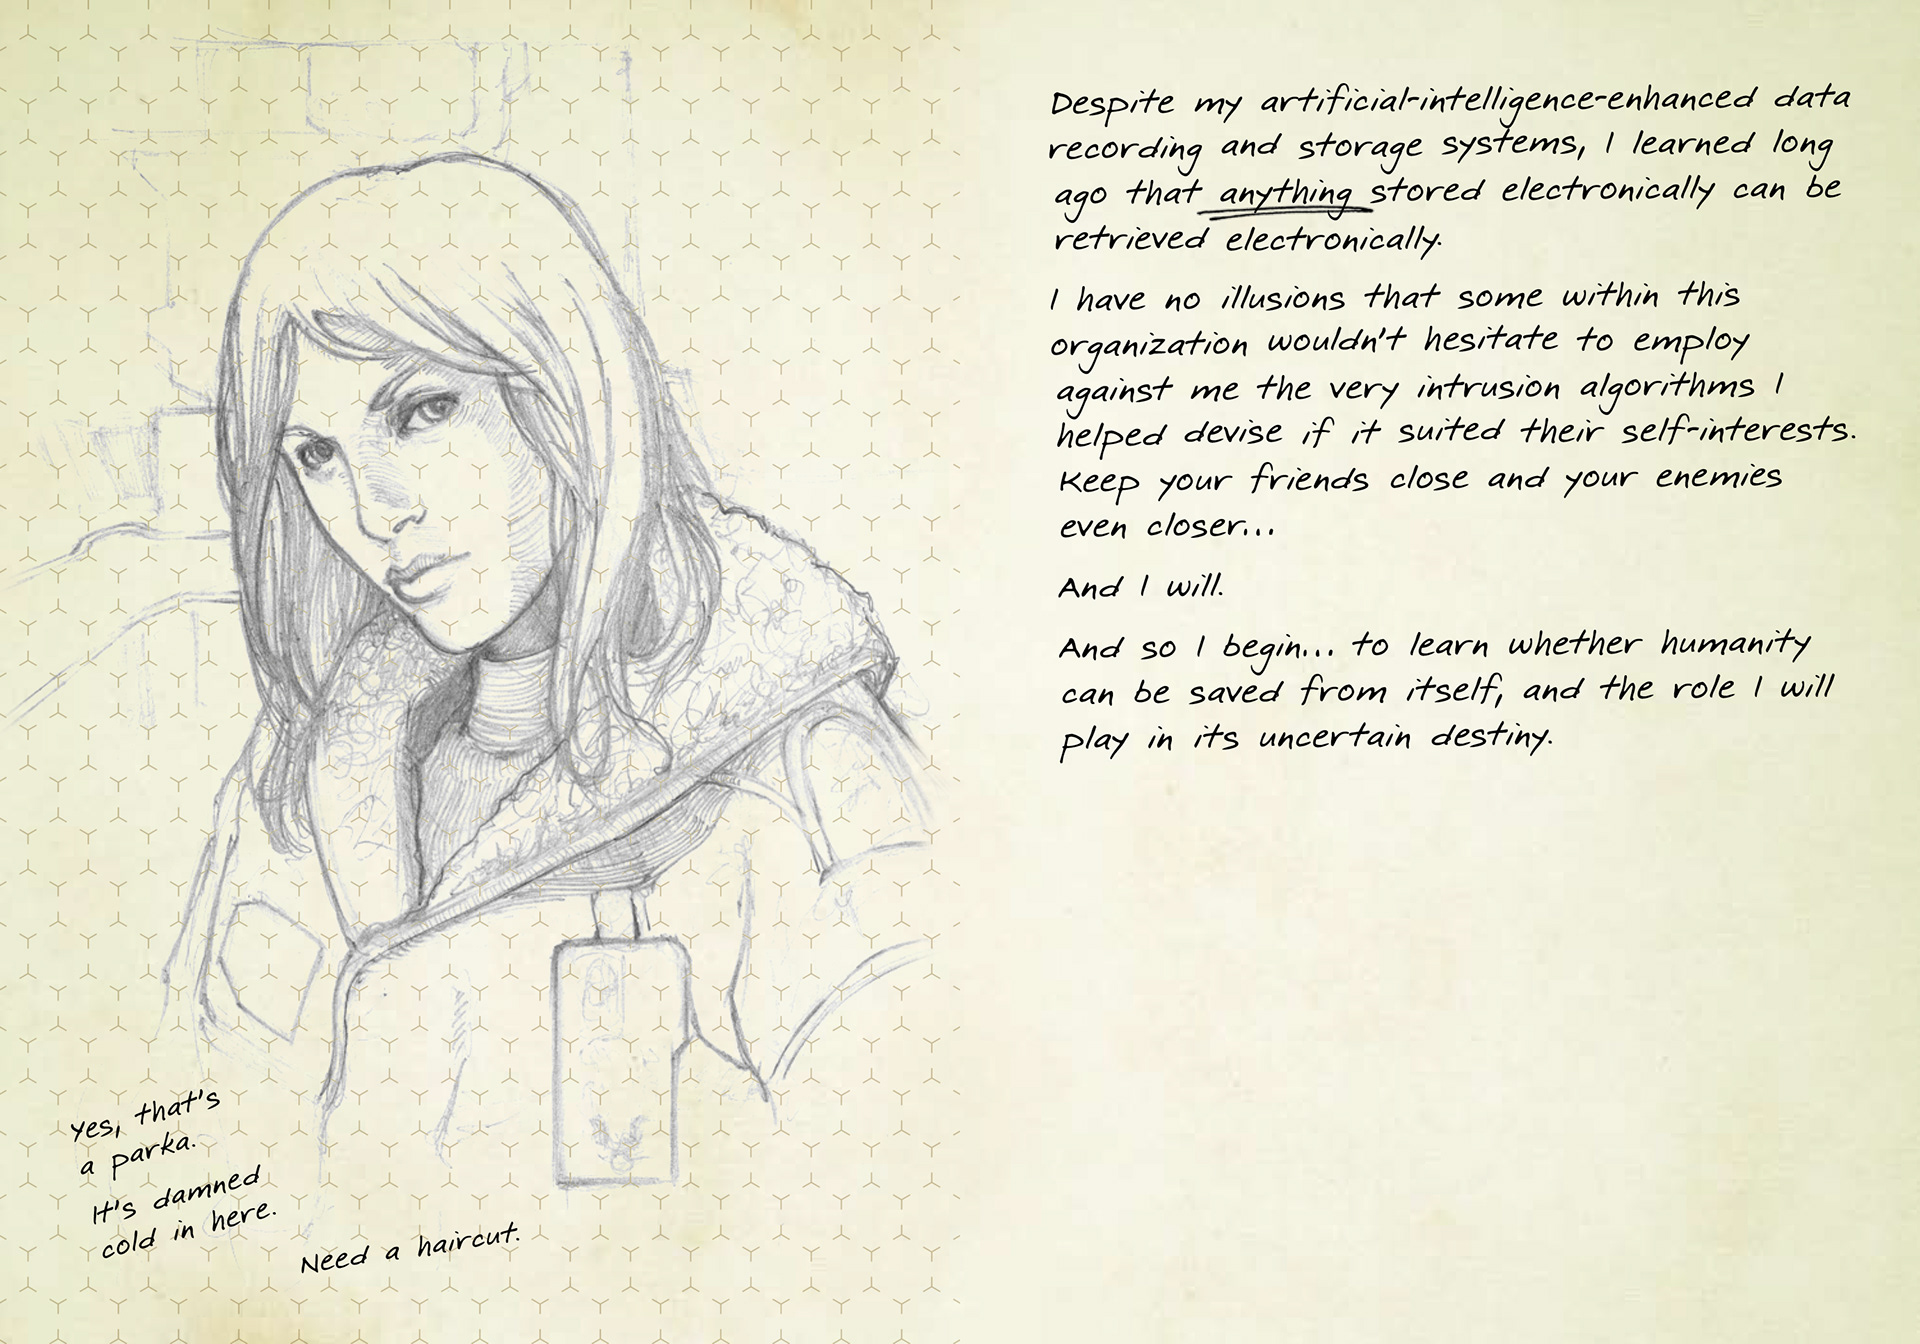 Despite my artificial-intelligence-enhanced data
recording and storage systems, I learned long
ago that anything stored electronically can be
retrieved electronically.
I have no illusions that some within this
organization wouldn't hesitate to employ
against me the very intrusion algorithms I
helped devise if it suited their self-interests.
Keep your friends close and your enemies
even closer...
And I will.
And so I begin... to learn whether humanity
can be saved from itself, and the role I will
play in its uncertain destiny.
Yes, that's
a parka.
It's damned
cold in here.
Need a haircut.